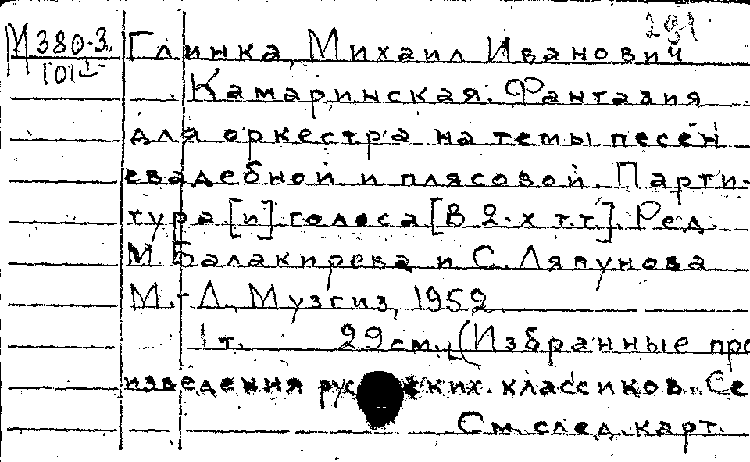 291
М380-3 Глинка, Михаил Иванович
101
Камаринская. Фантазия
для оркестра на темы песен
свадебной и плясовой. Парти-
тура [и] голоса [В 2-х т.т.]. Ред.
М. Балакирева и С. Ляпунова
М.-Л., Музгиз, 1952
1 т. 29 см. (Избранные про
изведения русских классиков. Се
См. след. карт.